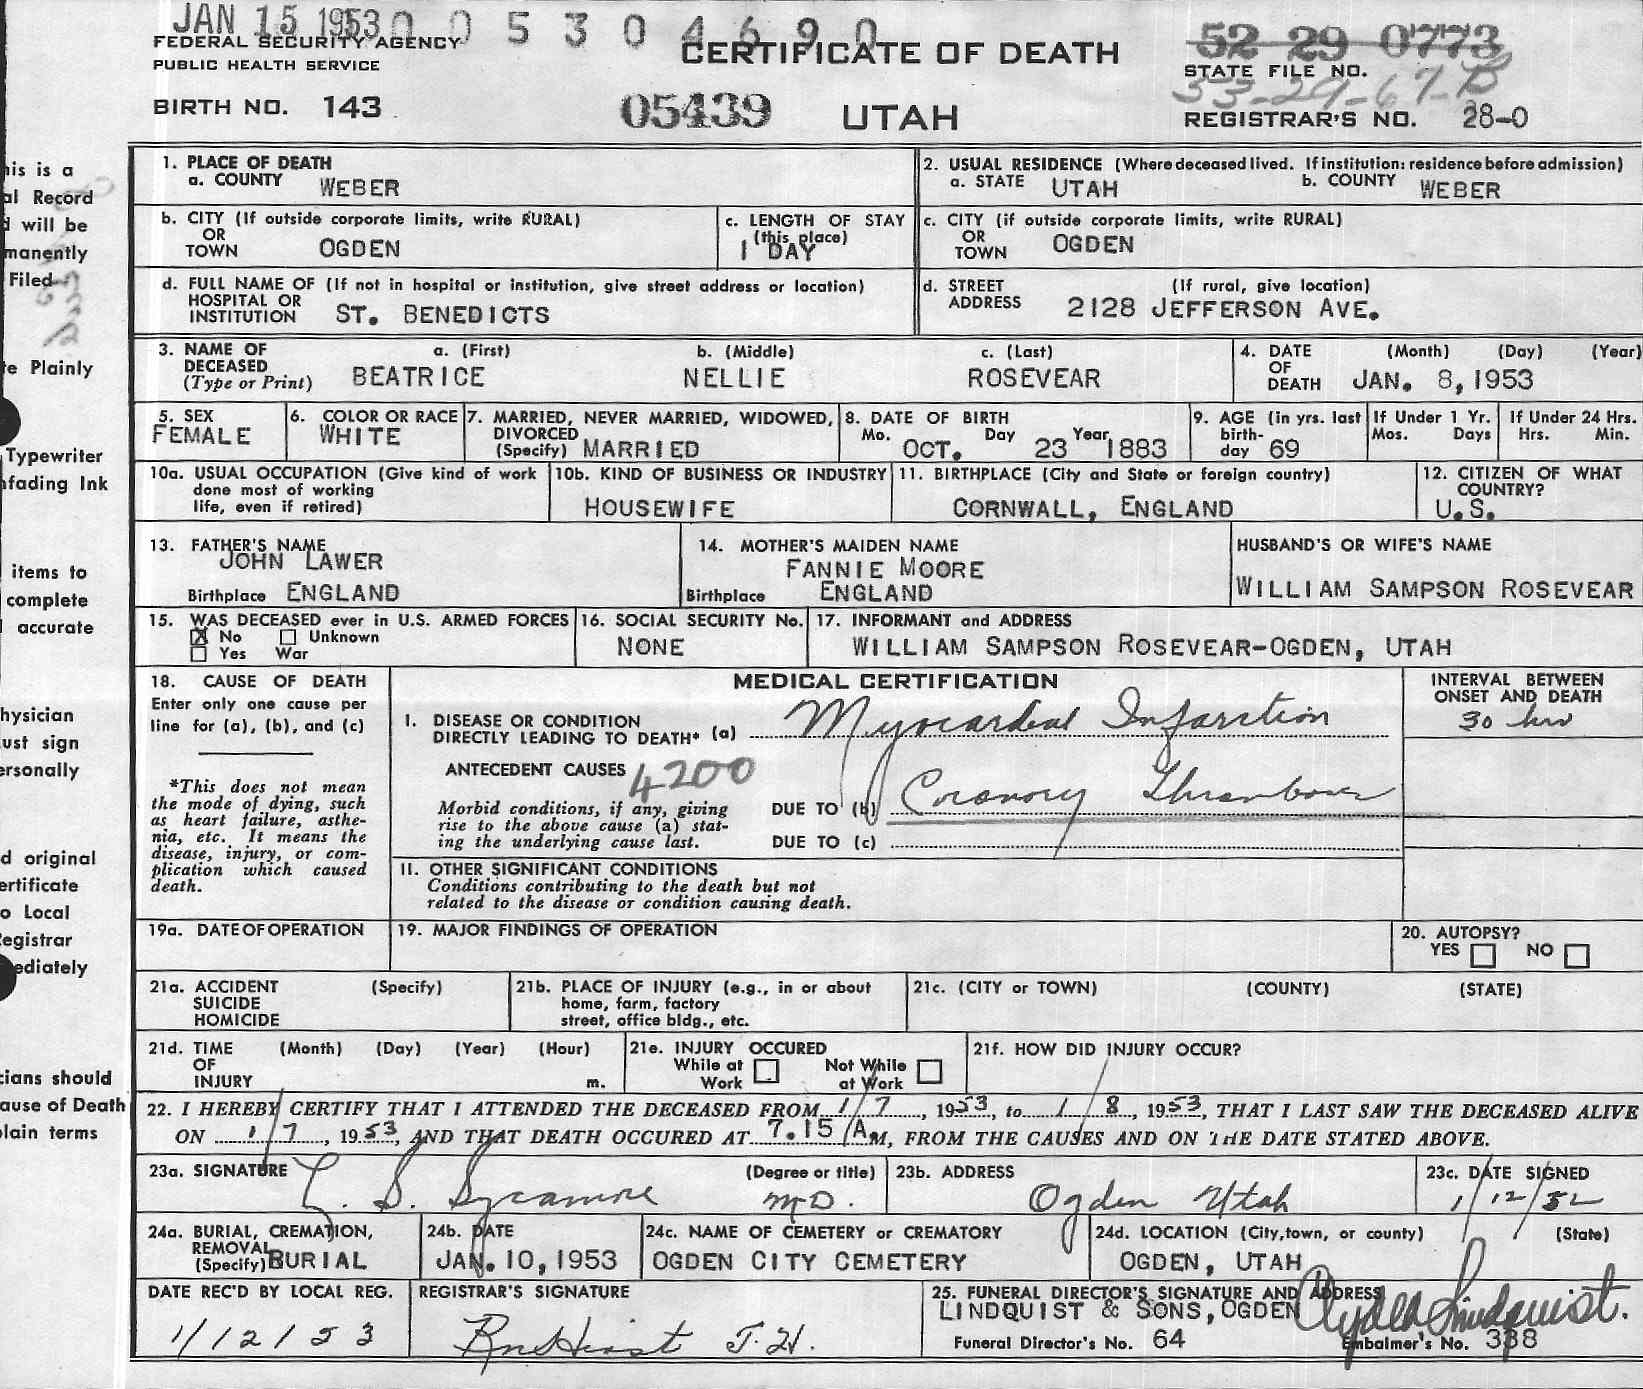 JAN 15 1953 0 0 5 3 0 4 6 9 0
FEDERAL SECURITY AGENCY
PUBLIC HEALTH SERVICE
CERTIFICATE OF DEATH
52 29 0773
STATE FILE NO.
53-29-67-B
BIRTH NO. 143
05439
UTAH
REGISTRAR'S NO. 28-0
his is a
al Record
d will be
manently
Filed
te Plainly
Typewriter
nfading Ink
items to
complete
accurate
hysician
ust sign
ersonally
d original
ertificate
o Local
Registrar
ediately
cians should
ause of Death
plain terms
1. PLACE OF DEATH
a. COUNTY WEBER
2. USUAL RESIDENCE (Where deceased lived. If institution: residence before admission)
a. STATE UTAH b. COUNTY WEBER
b. CITY (If outside corporate limits, write RURAL)
OR
TOWN OGDEN
c. LENGTH OF STAY
(this place)
1 DAY
c. CITY (if outside corporate limits, write RURAL)
OR
TOWN OGDEN
d. FULL NAME OF (If not in hospital or institution, give street address or location)
HOSPITAL OR
INSTITUTION ST. BENEDICTS
d. STREET (If rural, give location)
ADDRESS 2128 JEFFERSON AVE.
3. NAME OF a. (First) b. (Middle) c. (Last)
DECEASED
(Type or Print) BEATRICE NELLIE ROSEVEAR
4. DATE (Month) (Day) (Year)
OF
DEATH JAN. 8, 1953
5. SEX
FEMALE
6. COLOR OR RACE
WHITE
7. MARRIED, NEVER MARRIED, WIDOWED,
DIVORCED
(Specify) MARRIED
8. DATE OF BIRTH
Mo. OCT. Day 23 Year 1883
9. AGE (in yrs. last
birth-
day 69
If Under 1 Yr.
Mos. Days
If Under 24 Hrs.
Hrs. Min.
10a. USUAL OCCUPATION (Give kind of work
done most of working
life, even if retired)
10b. KIND OF BUSINESS OR INDUSTRY
HOUSEWIFE
11. BIRTHPLACE (City and State or foreign country)
CORNWALL, ENGLAND
12. CITIZEN OF WHAT
COUNTRY?
U.S.
13. FATHER'S NAME
JOHN LAWER
Birthplace ENGLAND
14. MOTHER'S MAIDEN NAME
FANNIE MOORE
Birthplace ENGLAND
HUSBAND'S OR WIFE'S NAME
WILLIAM SAMPSON ROSEVEAR
15. WAS DECEASED ever in U.S. ARMED FORCES
X No Unknown
Yes War
16. SOCIAL SECURITY No.
NONE
17. INFORMANT and ADDRESS
WILLIAM SAMPSON ROSEVEAR-OGDEN, UTAH
18. CAUSE OF DEATH
Enter only one cause per
line for (a), (b), and (c)
*This does not mean
the mode of dying, such
as heart failure, asthe-
nia, etc. It means the
disease, injury, or com-
plication which caused
death.
MEDICAL CERTIFICATION
INTERVAL BETWEEN
ONSET AND DEATH
I. DISEASE OR CONDITION
DIRECTLY LEADING TO DEATH* (a) Myocardial Infarction 30 hrs
ANTECEDENT CAUSES 4200
Morbid conditions, if any, giving
rise to the above cause (a) stat-
ing the underlying cause last.
DUE TO (b) Coronory Thrombosis
DUE TO (c)
II. OTHER SIGNIFICANT CONDITIONS
Conditions contributing to the death but not
related to the disease or condition causing death.
19a. DATE OF OPERATION
19. MAJOR FINDINGS OF OPERATION
20. AUTOPSY?
YES NO
21a. ACCIDENT (Specify)
SUICIDE
HOMICIDE
21b. PLACE OF INJURY (e.g., in or about
home, farm, factory
street, office bldg., etc.
21c. (CITY or TOWN) (COUNTY) (STATE)
21d. TIME (Month) (Day) (Year) (Hour)
OF
INJURY m.
21e. INJURY OCCURED
While at Not While
Work at Work
21f. HOW DID INJURY OCCUR?
22. I HEREBY CERTIFY THAT I ATTENDED THE DECEASED FROM 1/7, 1953, to 1/8, 1953, THAT I LAST SAW THE DECEASED ALIVE
ON 1/7, 1953, AND THAT DEATH OCCURED AT 7.15 AM, FROM THE CAUSES AND ON THE DATE STATED ABOVE.
23a. SIGNATURE (Degree or title)
L. S. Sycamore M.D.
23b. ADDRESS
Ogden Utah
23c. DATE SIGNED
1/12/52
24a. BURIAL, CREMATION,
REMOVAL
(Specify) BURIAL
24b. DATE
JAN. 10, 1953
24c. NAME OF CEMETERY OR CREMATORY
OGDEN CITY CEMETERY
24d. LOCATION (City, town, or county) (State)
OGDEN, UTAH
DATE REC'D BY LOCAL REG.
1/12/53
REGISTRAR'S SIGNATURE
25. FUNERAL DIRECTOR'S SIGNATURE AND ADDRESS
LINDQUIST & SONS, OGDEN Clyde Lindquist.
Funeral Director's No. 64 Embalmer's No. 338